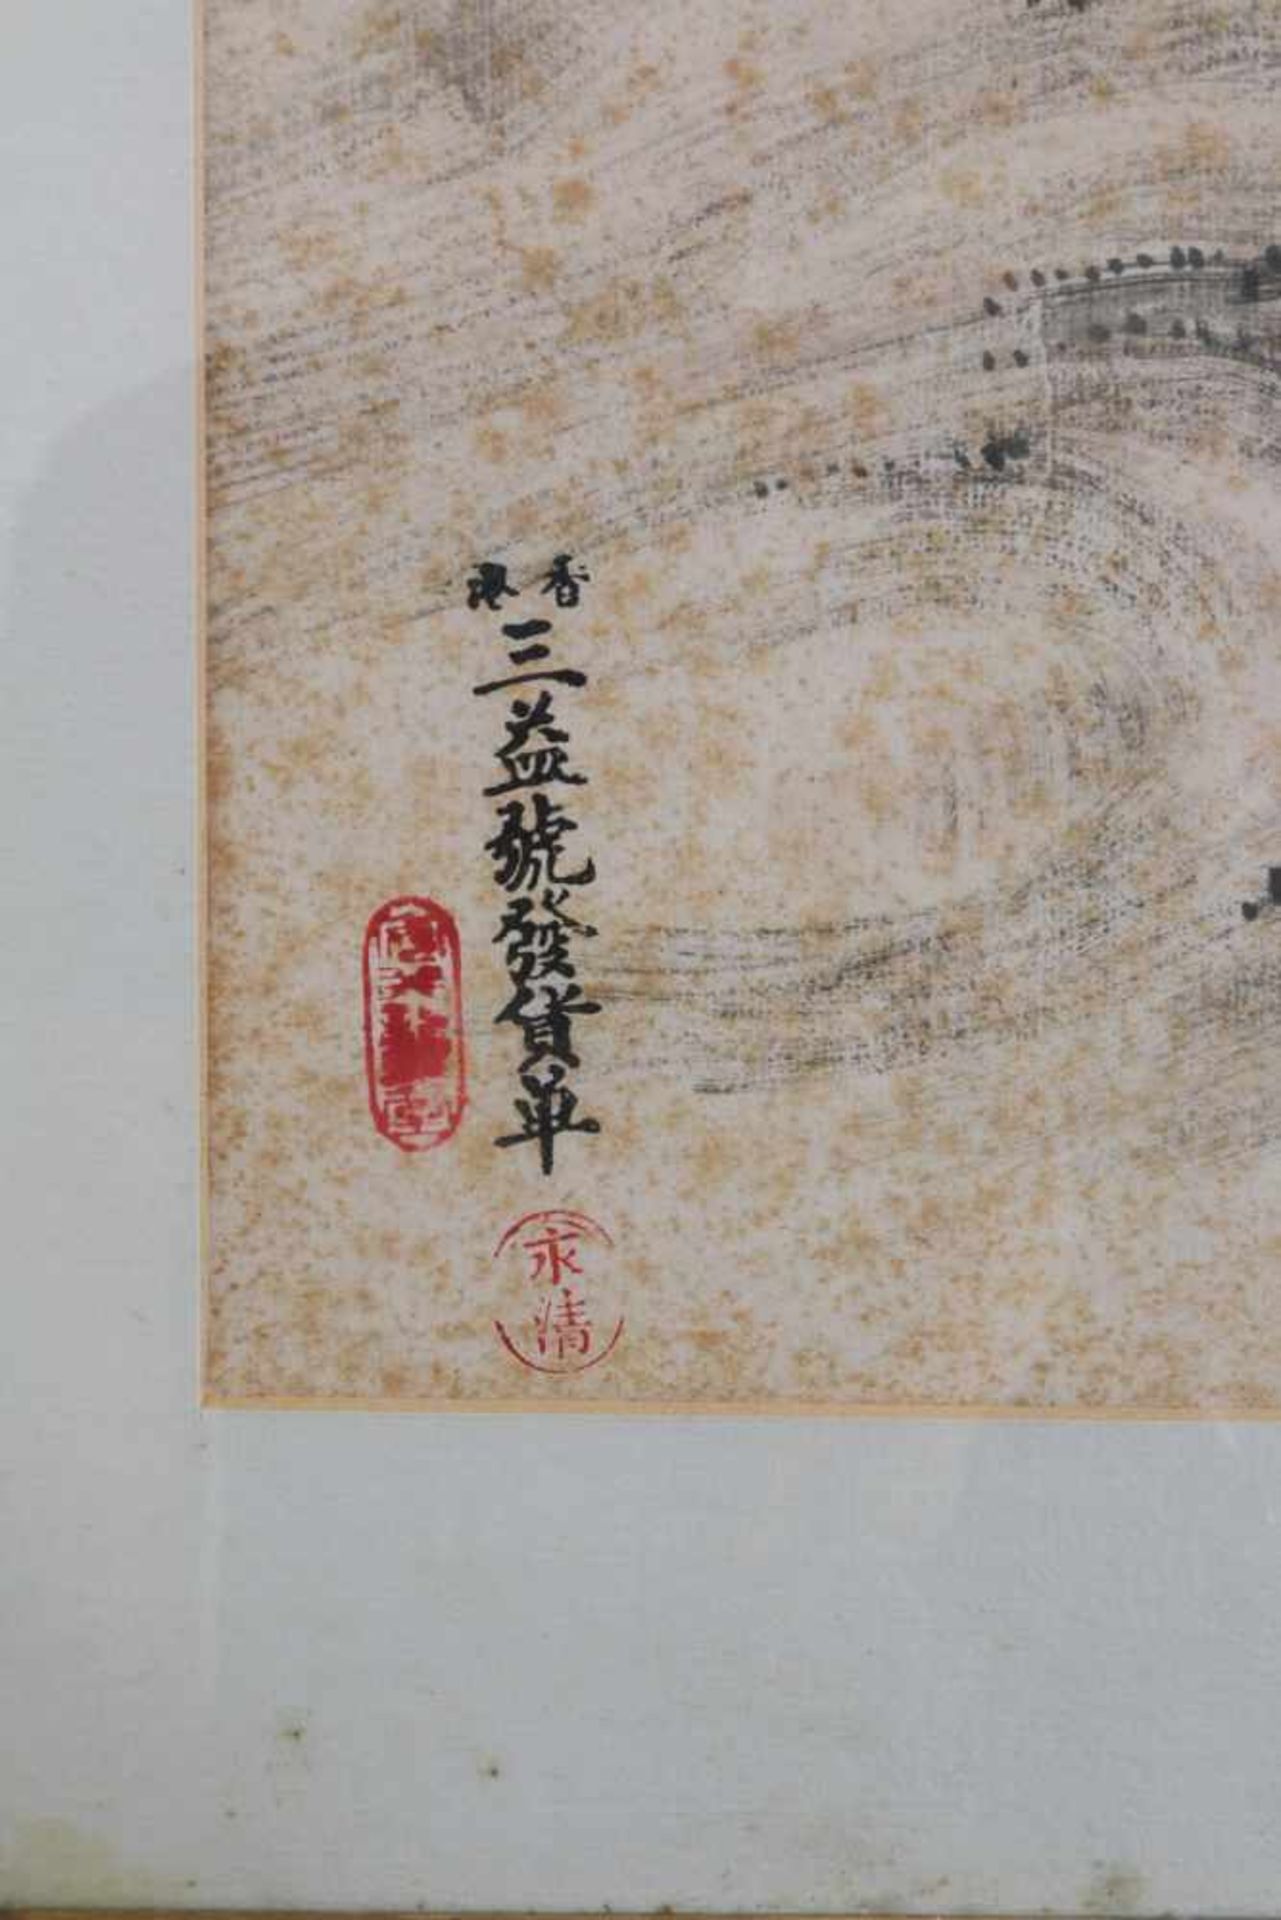 香港
三益號發貨單
永清